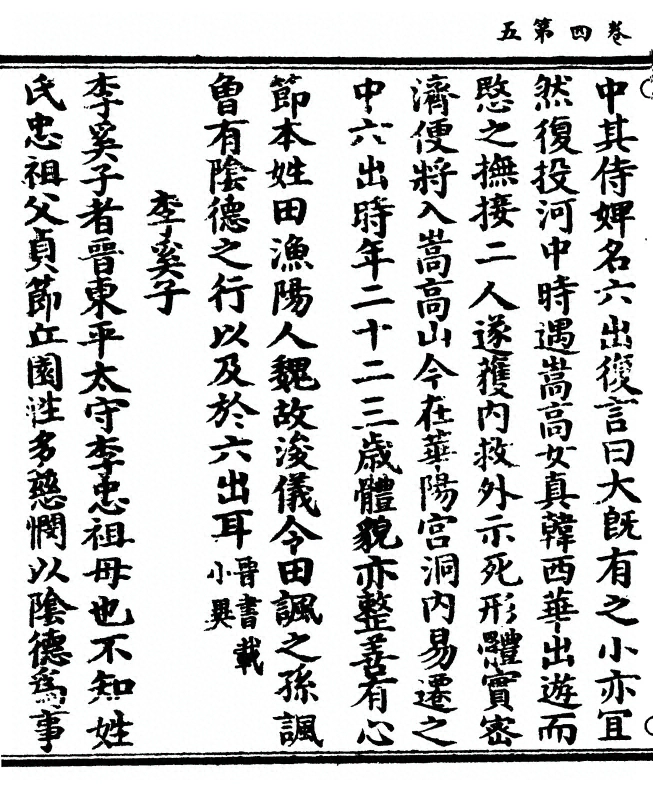 卷四第五
中其侍婢名六出復言曰大既有之小亦冝
然復投河中時遇嵩高女真韓西華出遊而
愍之撫接二人遂獲内救外示死形體實密
濟便將入嵩高山今在華陽宮洞内易遷之
中六出時年二十二三歲體貌亦整善有心
節本姓田漁陽人魏故浚儀令田諷之孫諷
曾有陰德之行以及於六出耳晉書載小異
李奚子
李奚子者晉東平太守李忠祖母也不知姓
氏忠祖父貞節丘園性多慈憫以陰德為事